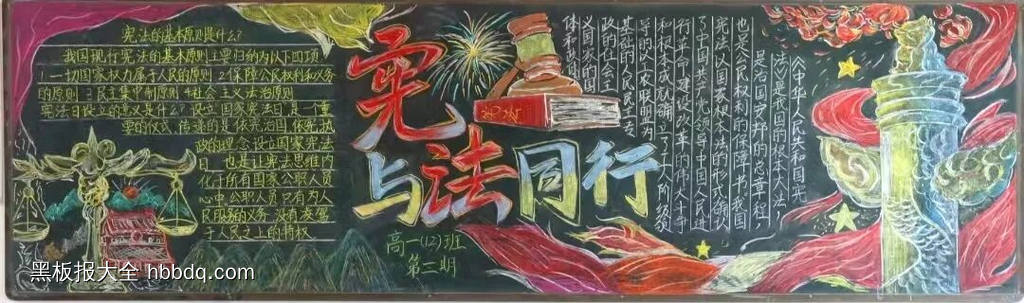 宪法的基本原则是什么?
我国现行宪法的基本原则主要归纳为以下四项
1.一切国家权力属于人民的原则 2.保障公民权利和义务
的原则 3.民主集中制原则 4.社会主义法治原则
宪法日设立的意义是什么?设立国家宪法日,是一个重
要的仪式,传递的是依宪治国、依宪执
政的理念 设立国家宪法
日,也是让宪法思维内
化于所有国家公职人员
心中 公职人员只有为人
民服务的义务 没有凌驾
于人民之上的特权
宪
与法同行
高一(12)班
第二期
宪法
《中华人民共和国宪
法》是我国的根本大法,
是治国安邦的总章程,
也是公民权利的保障书 我国
宪法以国家根本法的形式,确认
了中国共产党领导中国人民进
行革命、建设、改革的伟大斗争
和根本成就,确立了工人阶级领
导的、以工农联盟为
基础的人民民主专
政的社会主
义国家的国
体和
黑板报大全 hbbdq.com